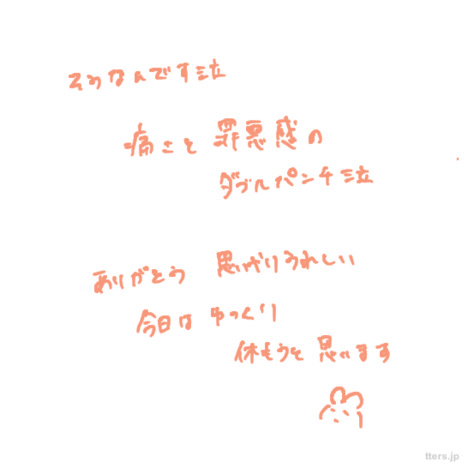 そうなんです泣
痛さと 罪悪感の
ダブルパンチ泣
ありがとう 思いやりうれしい
今日は ゆっくり
休もうと 思います
tters.jp